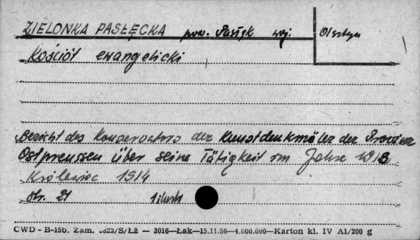 ZIELONKA PASŁĘCKA pow. Pasłęk woj. Olsztyn
Kościół ewangelicki
Bericht des Konservators der Kunstdenkmäler der Provinz
Ostpreussen über seine Tätigkeit im Jahre 1913
Królewiec 1914
str. 21 1 ilustr.
CWD - B-15b. Zam. 3823/S/Łż — 3016—Łak—15.11.56—4.000.000—Karton kl. IV A1/200 g